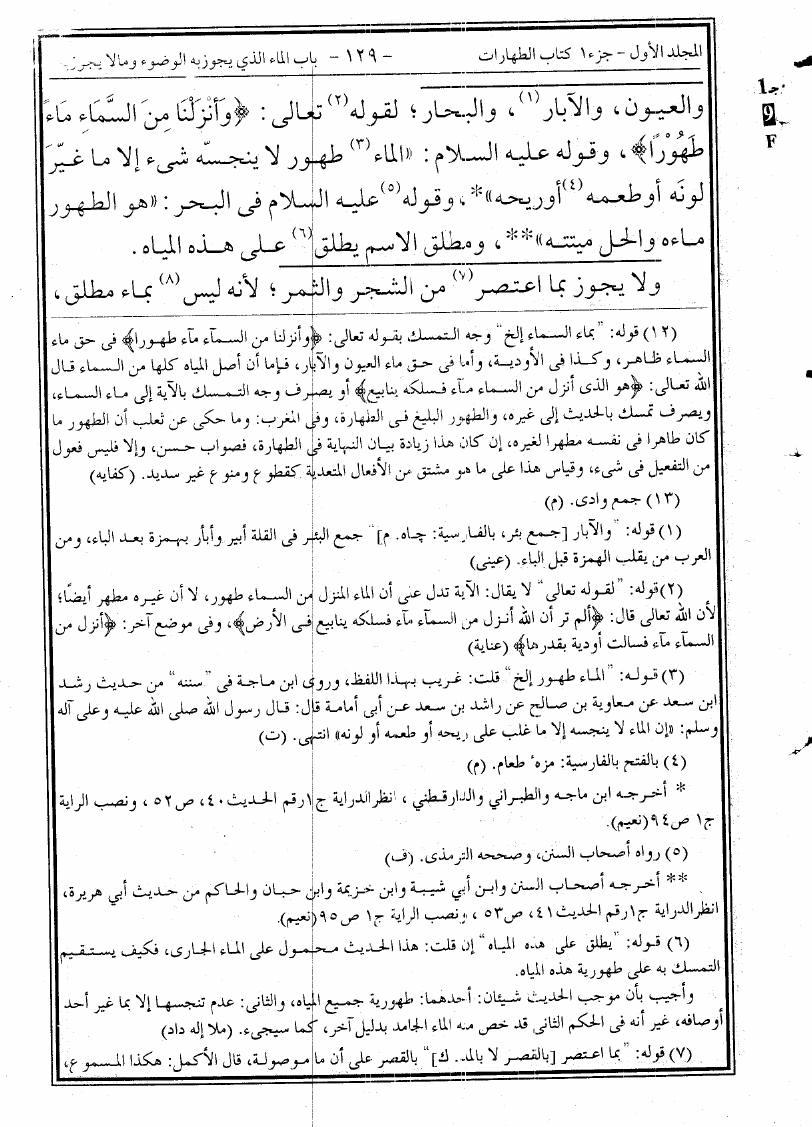 المجلد الأول - جزء ١ كتاب الطهارات - ١٢٩ - باب الماء الذي يجوز به الوضوء ومالا يجوز به
والعيون، والآبار(١)، والبحار؛ لقوله(٢) تعالى: ﴿وَأَنْزَلْنَا مِنَ السَّمَاءِ مَاءً
طَهُوْرًا﴾، وقوله عليه السلام: «الماء(٣) طهور لا ينجسّه شىء إلا ما غيَّرَ
لونَه أو طعمه(٤) أوريحه»*، وقوله(٥) عليه السلام فى البحر: «هو الطهور
ماءه والحل ميتته»**، ومطلق الاسم يطلق(٦) على هذه المياه.
ولا يجوز بما اعتصر(٧) من الشجر والثمر؛ لأنه ليس(٨) بماء مطلق،
(١٢) قوله: "بماء السماء إلخ" وجه التمسك بقوله تعالى: ﴿وأنزلنا من السمآء مآء طهورا﴾ فى حق ماء
السماء ظاهر، وكذا فى الأودية، وأما فى حق ماء العيون والآبار، فإما أن أصل المياه كلها من السماء قال
الله تعالى: ﴿هو الذى أنزل من السماء مآء فسلكه ينابيع﴾ أو يصرف وجه التمسك بالآية إلى ماء السماء،
ويصرف تمسك بالحديث إلى غيره، والطهور البليغ فى الطهارة، وفى المغرب: وما حكى عن ثعلب أن الطهور ما
كان طاهرا فى نفسه مطهرا لغيره، إن كان هذا زيادة بيان النهاية فى الطهارة، فصواب حسن، وإلا فليس فعول
من التفعيل فى شىء، وقياس هذا على ما هو مشتق من الأفعال المتعدية كقطوع ومنوع غير سديد. (كفايه)
(١٣) جمع وادى. (م)
(١) قوله: "والآبار [جمع بئر، بالفارسية: چاه. م]" جمع البئر فى القلة أبير وأبأر بهمزة بعد الباء، ومن
العرب من يقلب الهمزة قبل الباء. (عينى)
(٢) قوله: "لقوله تعالى" لا يقال: الآية تدل على أن الماء المنزل من السماء طهور، لا أن غيره مطهر أيضًا؛
لأن الله تعالى قال: ﴿ألم تر أن الله أنزل من السمآء مآء فسلكه ينابيع فى الأرض﴾، وفى موضع آخر: ﴿أنزل من
السمآء مآء فسالت أودية بقدرها﴾ (عناية)
(٣) قوله: "الماء طهور إلخ" قلت: غريب بهذا اللفظ، وروى ابن ماجة فى "سننه" من حديث رشد
ابن سعد عن معاوية بن صالح عن راشد بن سعد عن أبى أمامة قال: قال رسول الله صلى الله عليه وعلى آله
وسلم: «إن الماء لا ينجسه إلا ما غلب على ريحه أو طعمه أو لونه» انتهى. (ت)
(٤) بالفتح بالفارسية: مزهٔ طعام. (م)
* أخرجه ابن ماجه والطبراني والدارقطني، انظر الدراية ج١ رقم الحديث ٤٠، ص ٥٢، ونصب الراية
ج١ ص ٩٤ (نعيم).
(٥) رواه أصحاب السنن، وصححه الترمذى. (ف)
** أخرجه أصحاب السنن وابن أبي شيبة وابن خزيمة وابن حبان والحاكم من حديث أبي هريرة،
انظر الدراية ج١ رقم الحديث ٤١، ص ٥٣، ونصب الراية ج١ ص ٩٥ (نعيم).
(٦) قوله: "يطلق على هذه المياه" إن قلت: هذا الحديث محمول على الماء الجارى، فكيف يستقيم
التمسك به على طهورية هذه المياه.
وأجيب بأن موجب الحديث شيئان: أحدهما: طهورية جميع المياه، والثانى: عدم تنجسها إلا بما غير أحد
أوصافه، غير أنه فى الحكم الثانى قد خص منه الماء الجامد بدليل آخر، كما سيجىء. (ملا إله داد)
(٧) قوله: "بما اعتصر [بالقصر لا بالمد. ك]" بالقصر على أن ما موصولة، قال الأكمل: هكذا المسموع،
9
F